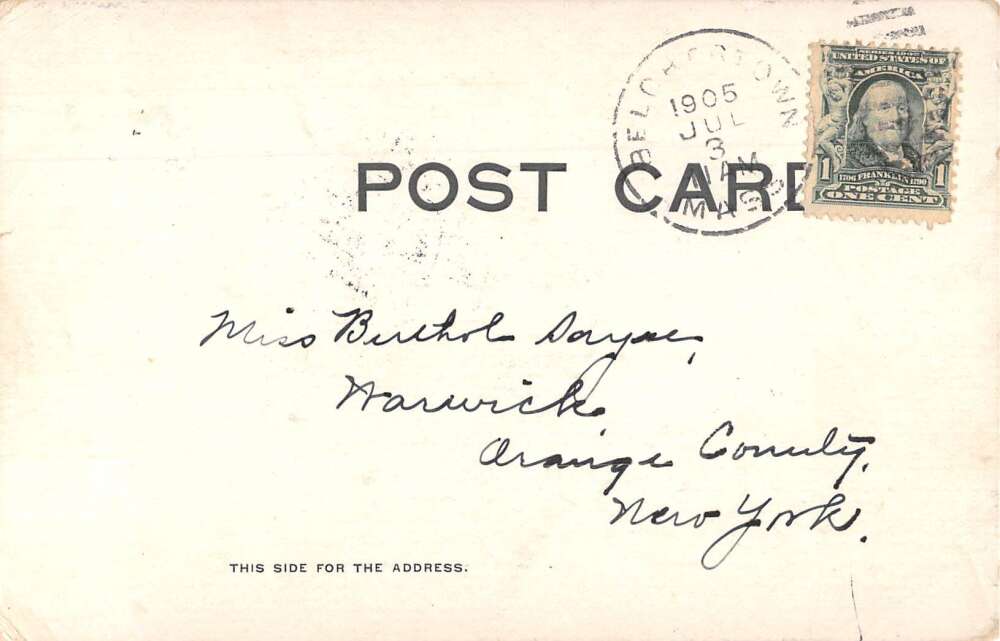 BELCHERTOWN
1905
JUL
3
AM
MASS
SERIES 1902
UNITED STATES OF
AMERICA
1 1706 FRANKLIN 1790 1
POSTAGE
ONE CENT
POST CARD
Miss
Warwick,
Orange County,
New York.
THIS SIDE FOR THE ADDRESS.